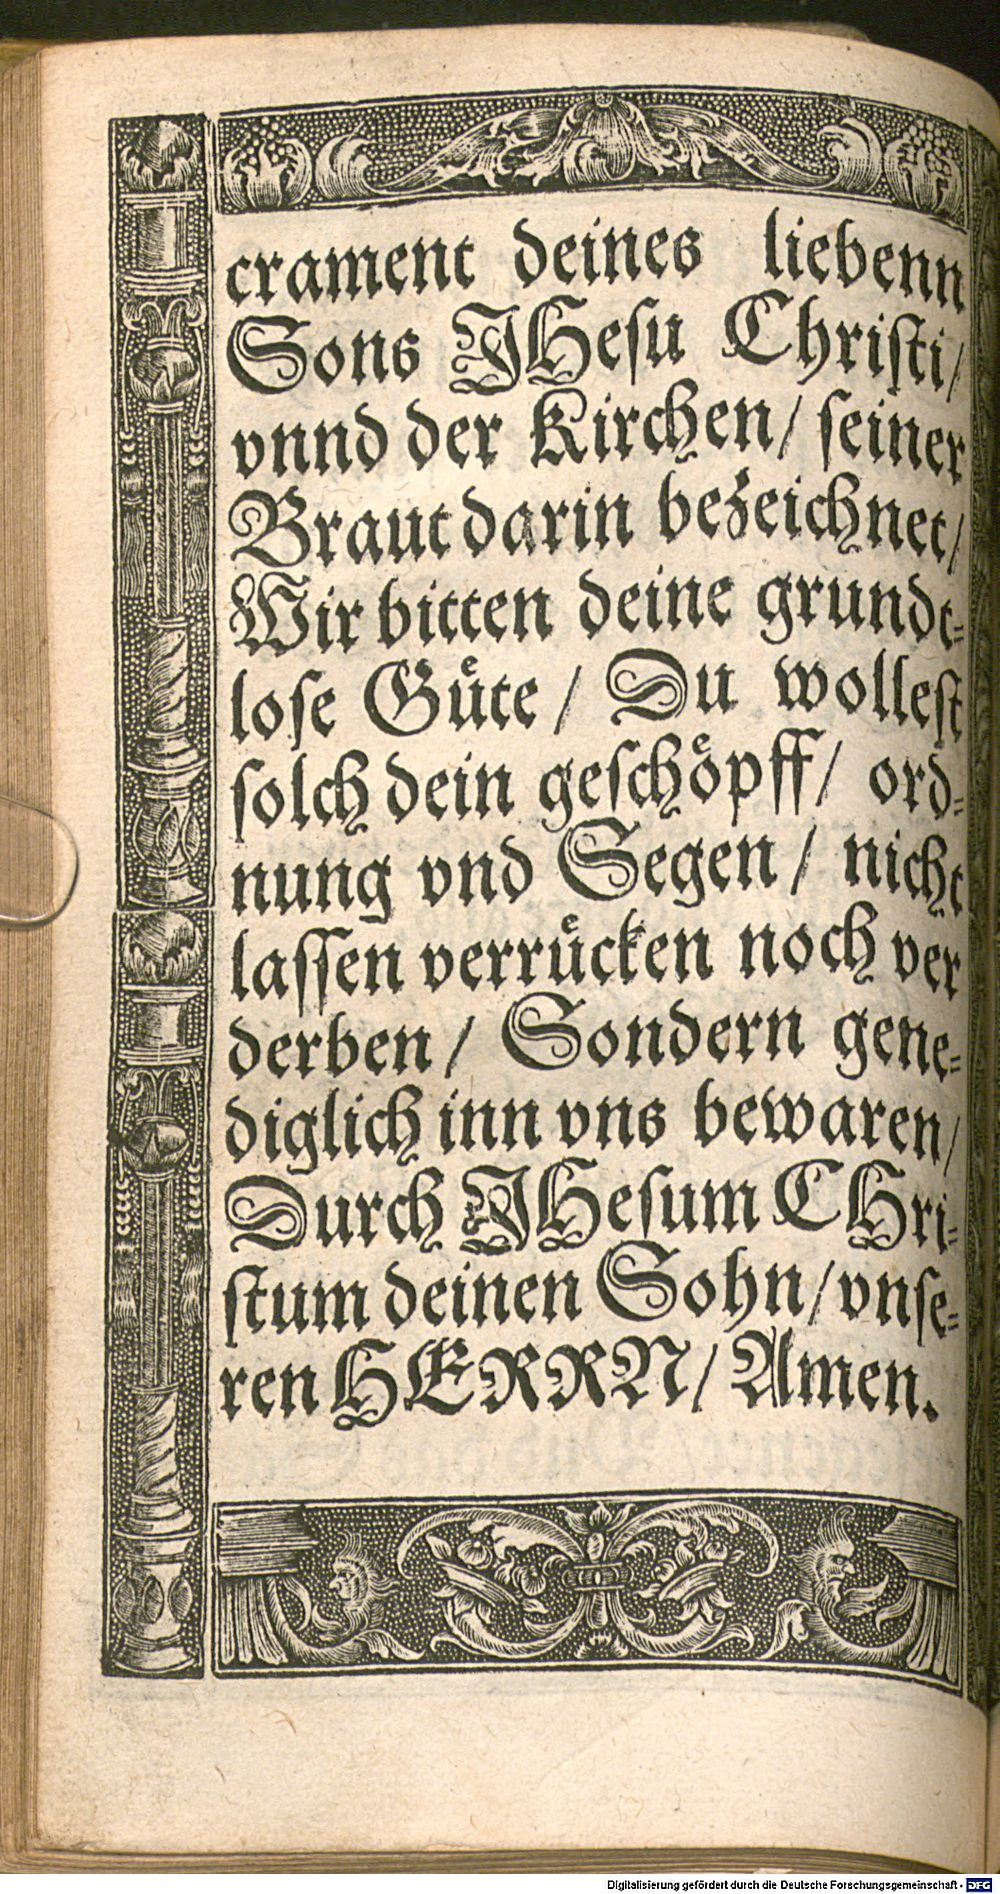 crament deines liebenn
Sons JHesu Christi/
vnnd der Kirchen/ seiner
Braut darin bezeichnet/
Wir bitten deine grundt-
lose Güte/ Du wollest
solch dein geschöpff/ ord-
nung vnd Segen/ nicht
lassen verrücken noch ver
derben/ Sondern gene-
diglich inn vns bewaren/
Durch JHesum CHri-
stum deinen Sohn/ vnse-
ren HERRN/ Amen.
Digitalisierung gefördert durch die Deutsche Forschungsgemeinschaft - DFG